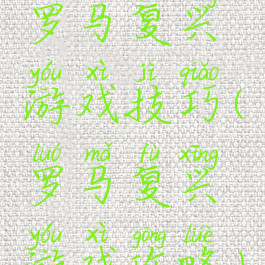 罗马复兴
yóu xì jì qiǎo
游戏技巧(
luó mǎ fù xīng
罗马复兴
yóu xì gōng lüè
游戏攻略)